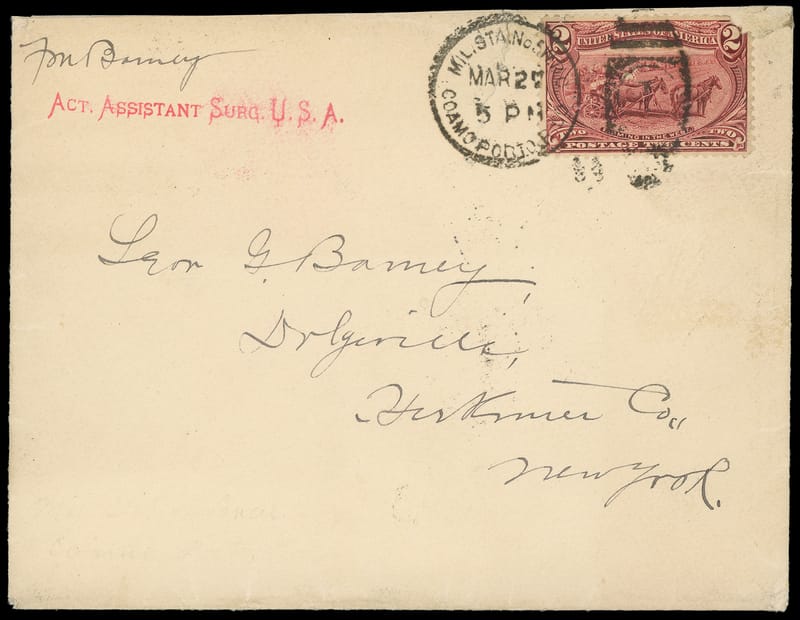 Fm Barney
ACT. ASSISTANT SURG. U. S. A.
MIL. STA. No.
MAR 27
5 PM
COAMO PORTO
2 UNITED STATES OF AMERICA 2
FARMING IN THE WEST.
TWO TWO
POSTAGE TWO CENTS
Leon G. Barney,
Dolgeville,
Herkimer Co.,
New York.